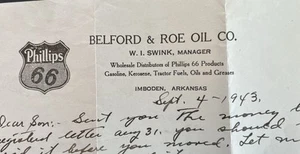 Phillips
66
BELFORD & ROE OIL CO.
W. I. SWINK, MANAGER
Wholesale Distributors of Phillips 66 Products
Gasoline, Kerosene, Tractor Fuels, Oils and Greases
IMBODEN, ARKANSAS
Sept. 4-1943.
Dear Son:- Sent you The money
letter aug 31. you should
it before you moved. Let